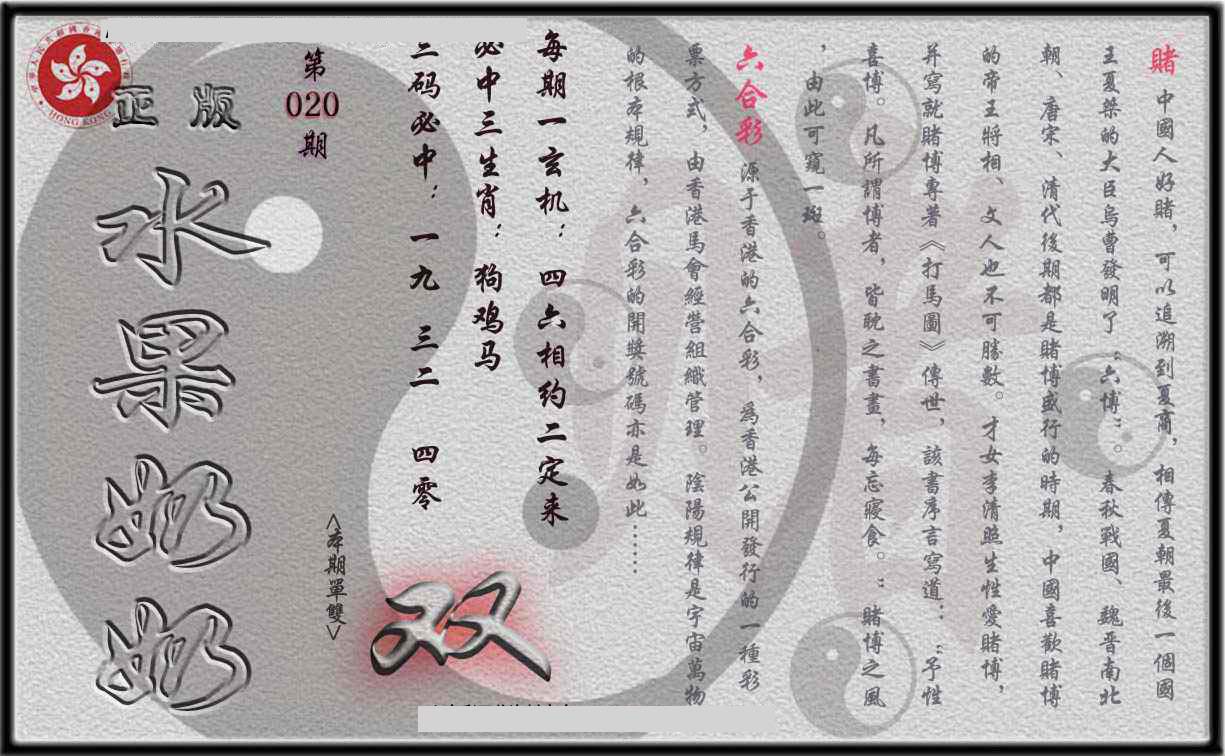 賭 中國人好賭，可以追溯到夏商，相傳夏朝最後一個國
王夏桀的大臣烏曹發明了“六博”。春秋戰國、魏晋南北
朝、唐宋、清代後期都是賭博盛行的時期，中國喜歡賭博
的帝王將相、文人也不可勝數。才女李清照生性愛賭博，
并寫就賭博專著《打馬圖》傳世，該書序言寫道：“予性
喜博。凡所謂博者，皆耽之晝，每忘寢食。”賭博之風
，由此可窺一斑。
六合彩 源于香港的六合彩，為香港公開發行的一種彩
票方式，由香港馬會經營組織管理。陰陽規律是宇宙萬物
的根本規律，六合彩的開獎號碼亦是如此……
每期一玄机：四六相约二定来
必中三生肖：狗鸡马
三码必中：一九 三二 四零
第
020
期
<本期單雙>
双
正版
水果奶奶
HONG KONG